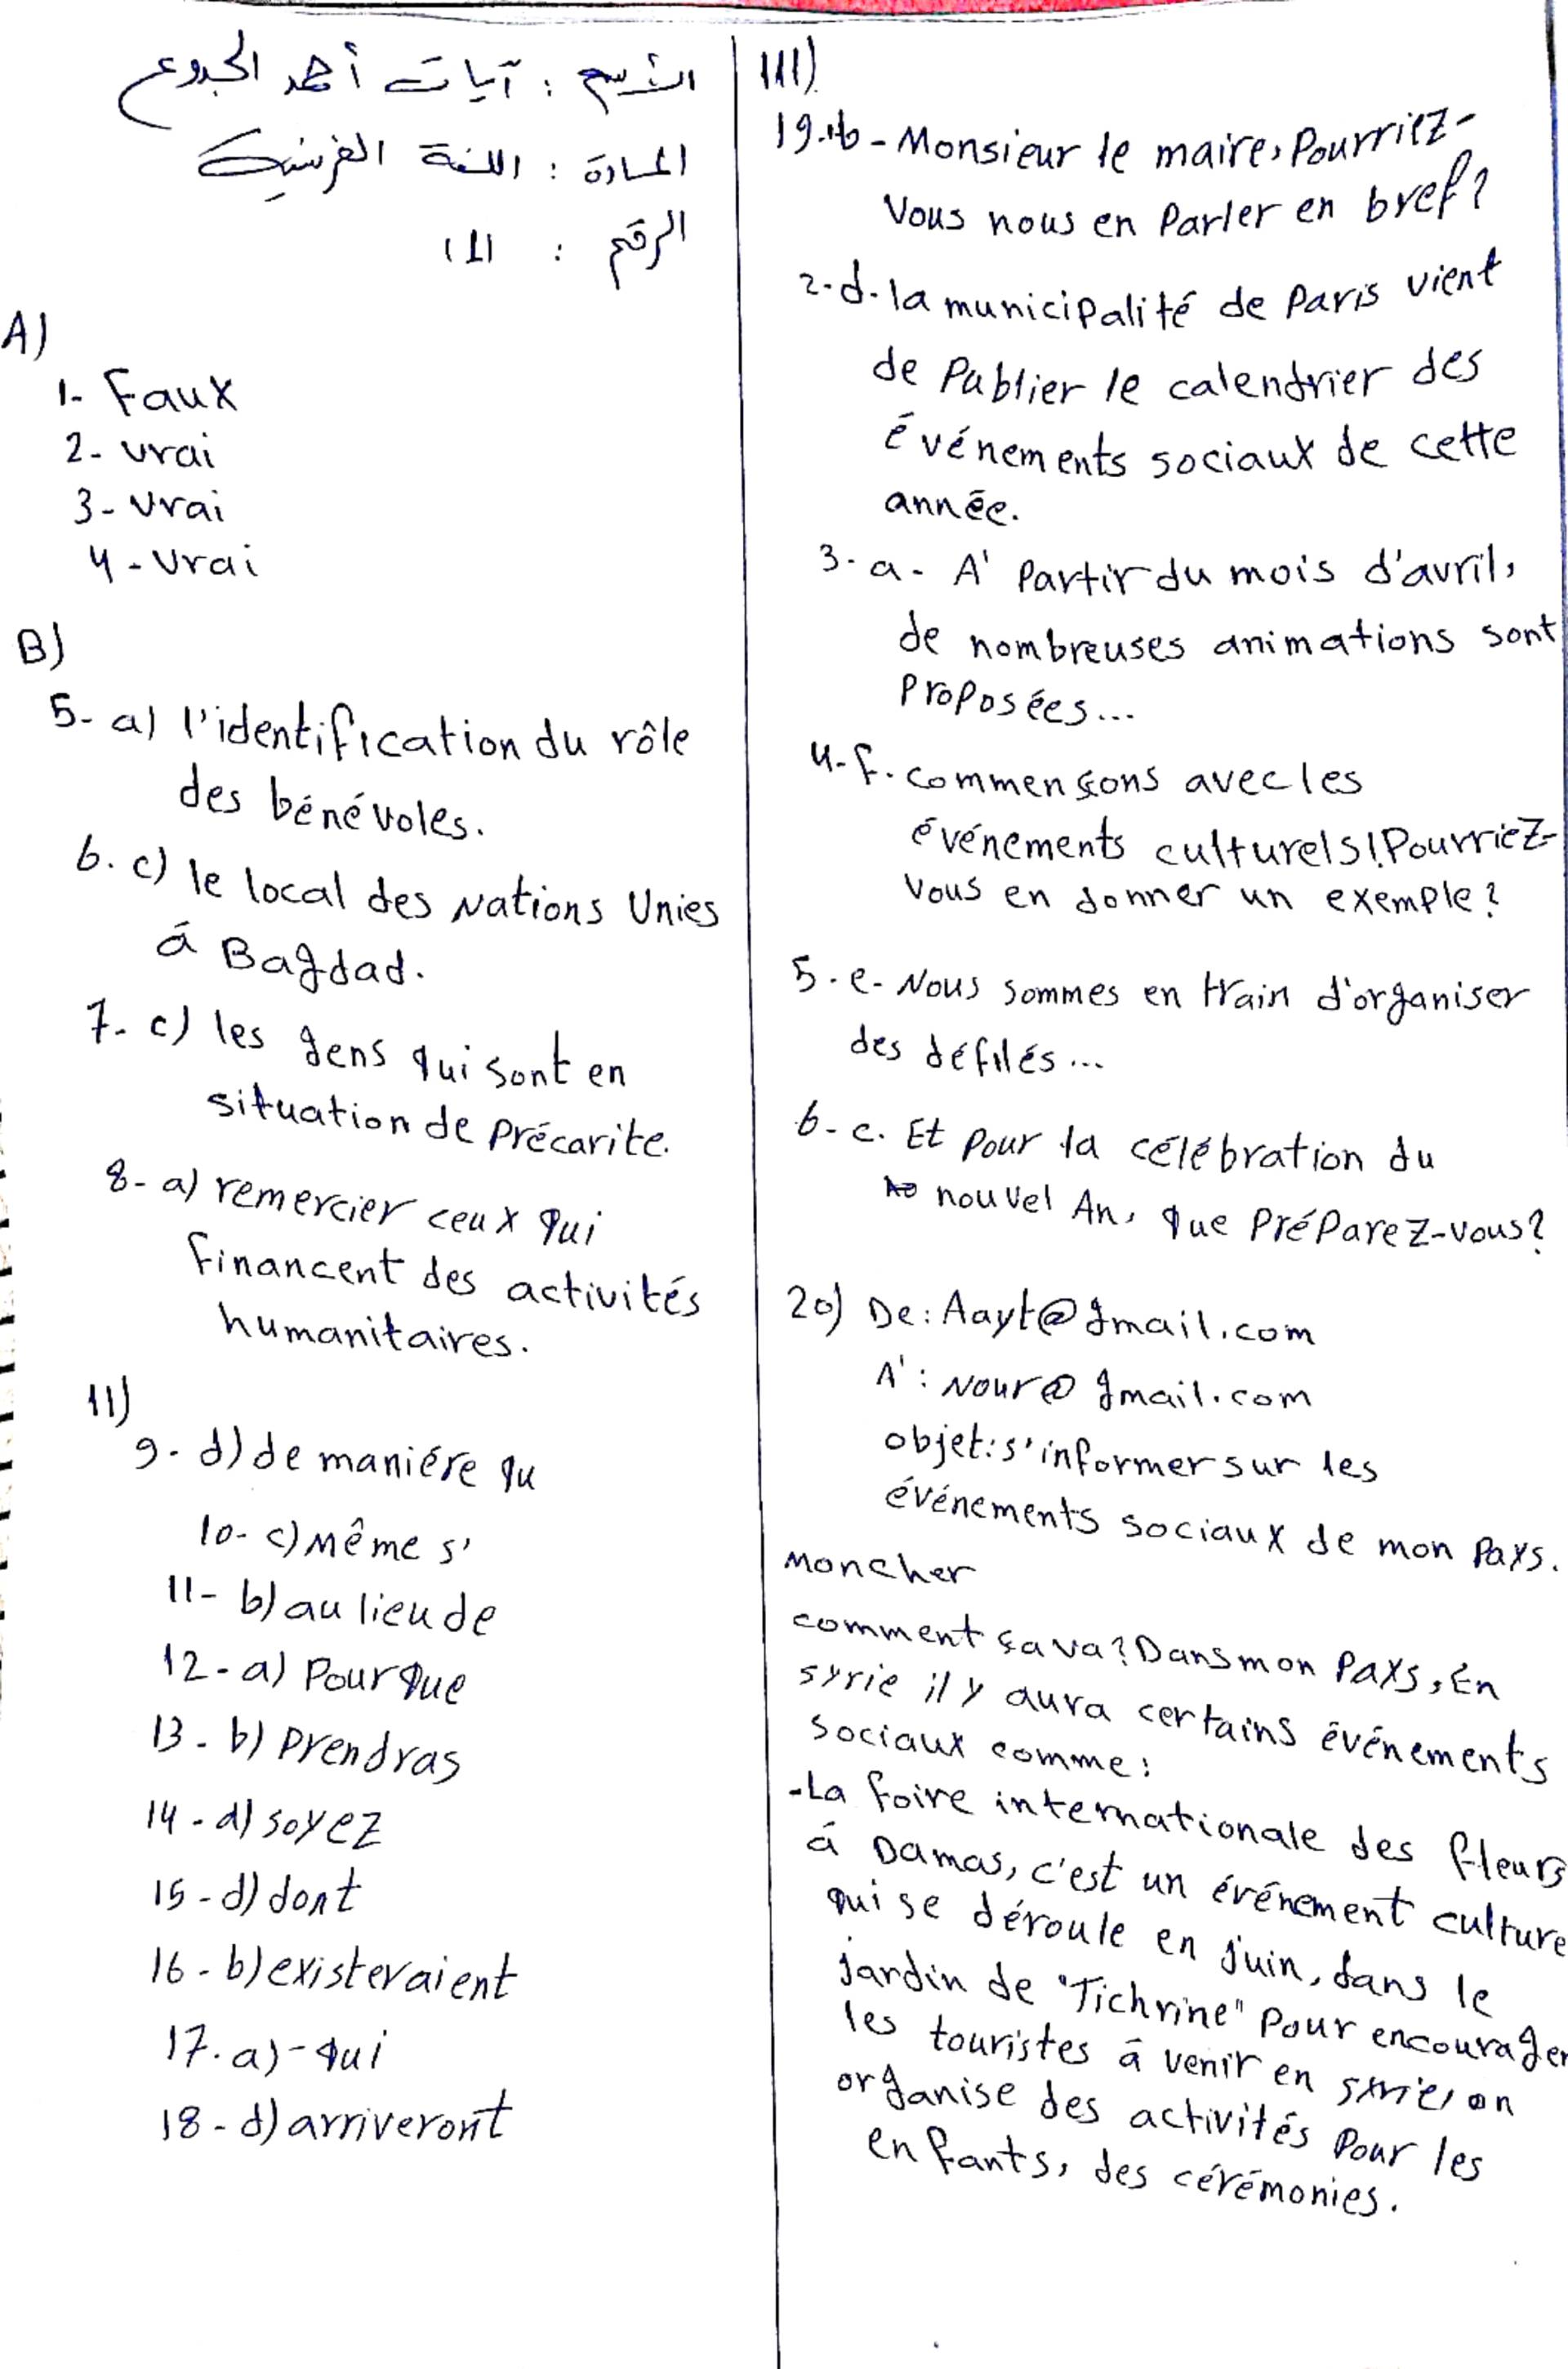 الأسم : آيات أحمد الجدوع
المادة : اللغة الفرنسية
الرقم : 111
A)
1- Faux
2- vrai
3- vrai
4- vrai
B)
5- a) l'identification du rôle
des bénévoles.
6. c) le local des Nations Unies
á Bagdad.
7- c) les gens qui sont en
situation de précarite.
8- a) remercier ceux qui
financent des activités
humanitaires.
11)
9- d) de maniére qu
10- c) Même s'
11- b) au lieu de
12- a) Pour que
13- b) prendras
14- d) soyez
15- d) dont
16- b) existeraient
17. a)- qui
18- d) arriveront
111)
19.1b- Monsieur le maire, Pourriez-
Vous nous en Parler en bref?
2-d. la municipalité de Paris vient
de Publier le calendrier des
événements sociaux de cette
année.
3- a- A' Partir du mois d'avril,
de nombreuses animations sont
Proposées...
4-f. commençons avec les
événements culturels! Pourriez-
Vous en donner un exemple?
5-e- Nous sommes en train d'organiser
des défilés...
6-c. Et pour la célébration du
nouvel An, que PréParez-vous?
20) De: Aayt@gmail.com
A': Nour@gmail.com
objet: s'informer sur les
événements sociaux de mon Pays.
Mon cher
comment ça va? Dans mon Pays, En
syrie il y aura certains événements
sociaux comme:
-La foire internationale des fleurs
á Damas, c'est un événement culture
qui se déroule en juin, dans le
jardin de "Tichrine" Pour encourager
les touristes á venir en syrie, on
organise des activités Pour les
enfants, des cérémonies.